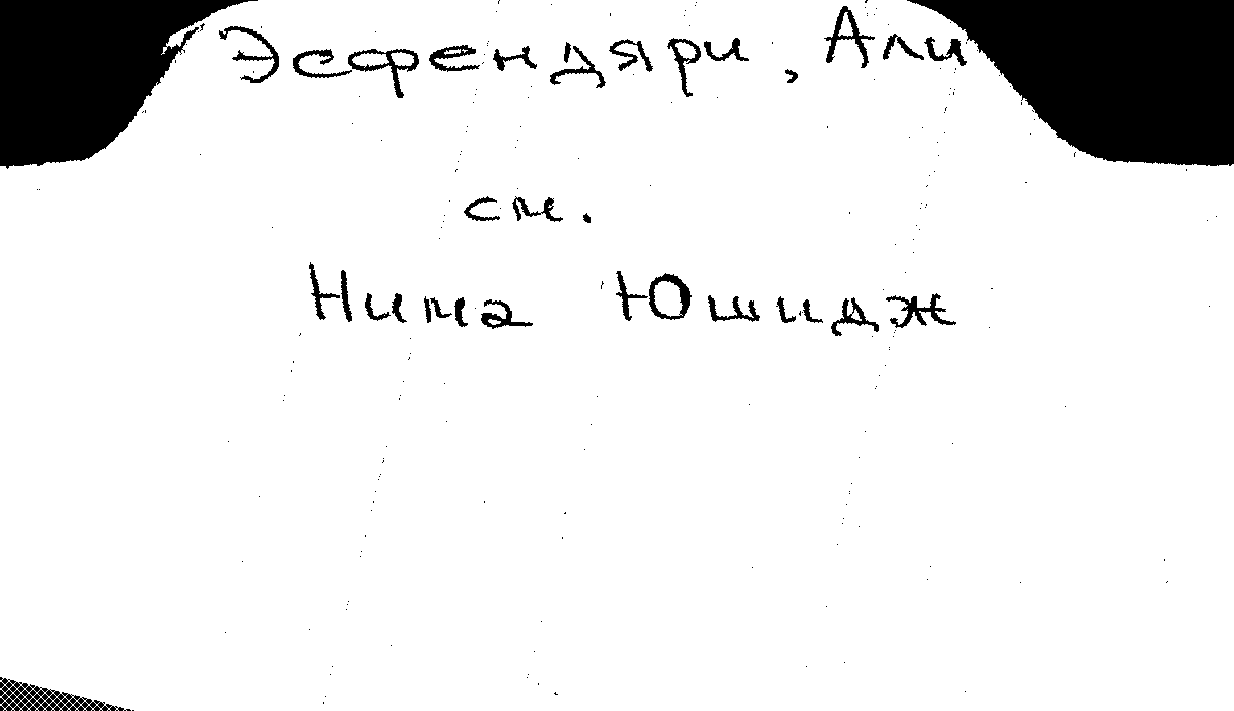 Эсфендяри, Али
см.
Нима Юшидж